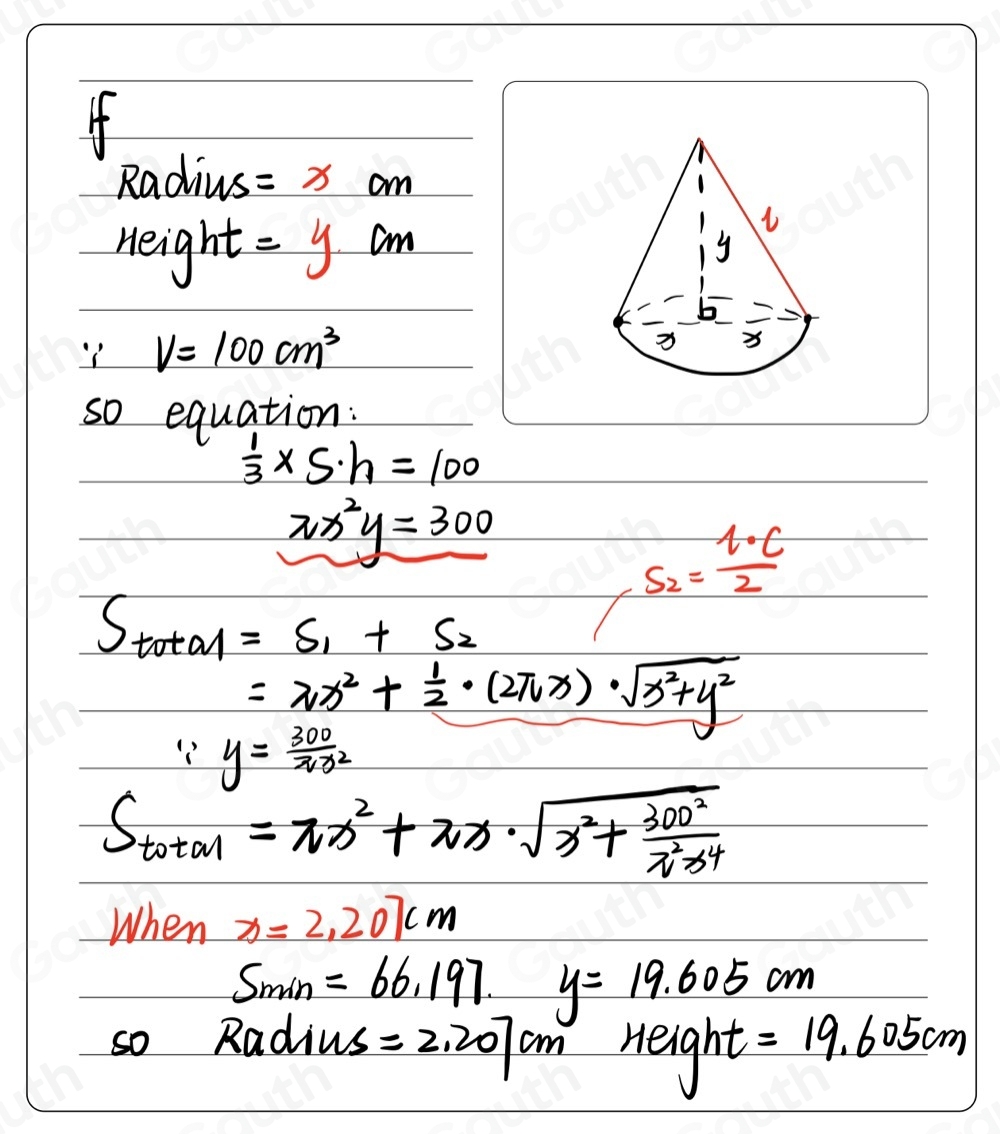 If
Radius = x cm
Height = y. cm
∵ V = 100 cm³
so equation:
1/3 × S·h = 100
πx²y = 300
S₂ = l·C/2
S total = S₁ + S₂
= πx² + 1/2 · (2πx) · √(x²+y²)
∵ y = 300/πx²
S total = πx² + πx · √(x² + 300²/π²x⁴)
When x = 2,207cm
Smin = 66.197. y = 19.605 cm
so Radius = 2.207cm Height = 19.605cm
l
y
x x
Gauth